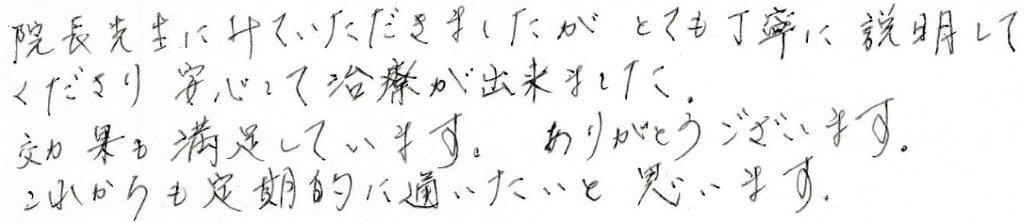 院長先生にみていただきましたが とても丁寧に説明して
くださり 安心して治療が出来ました。
効果も満足しています。 ありがとうございます。
これからも定期的に通いたいと思います。